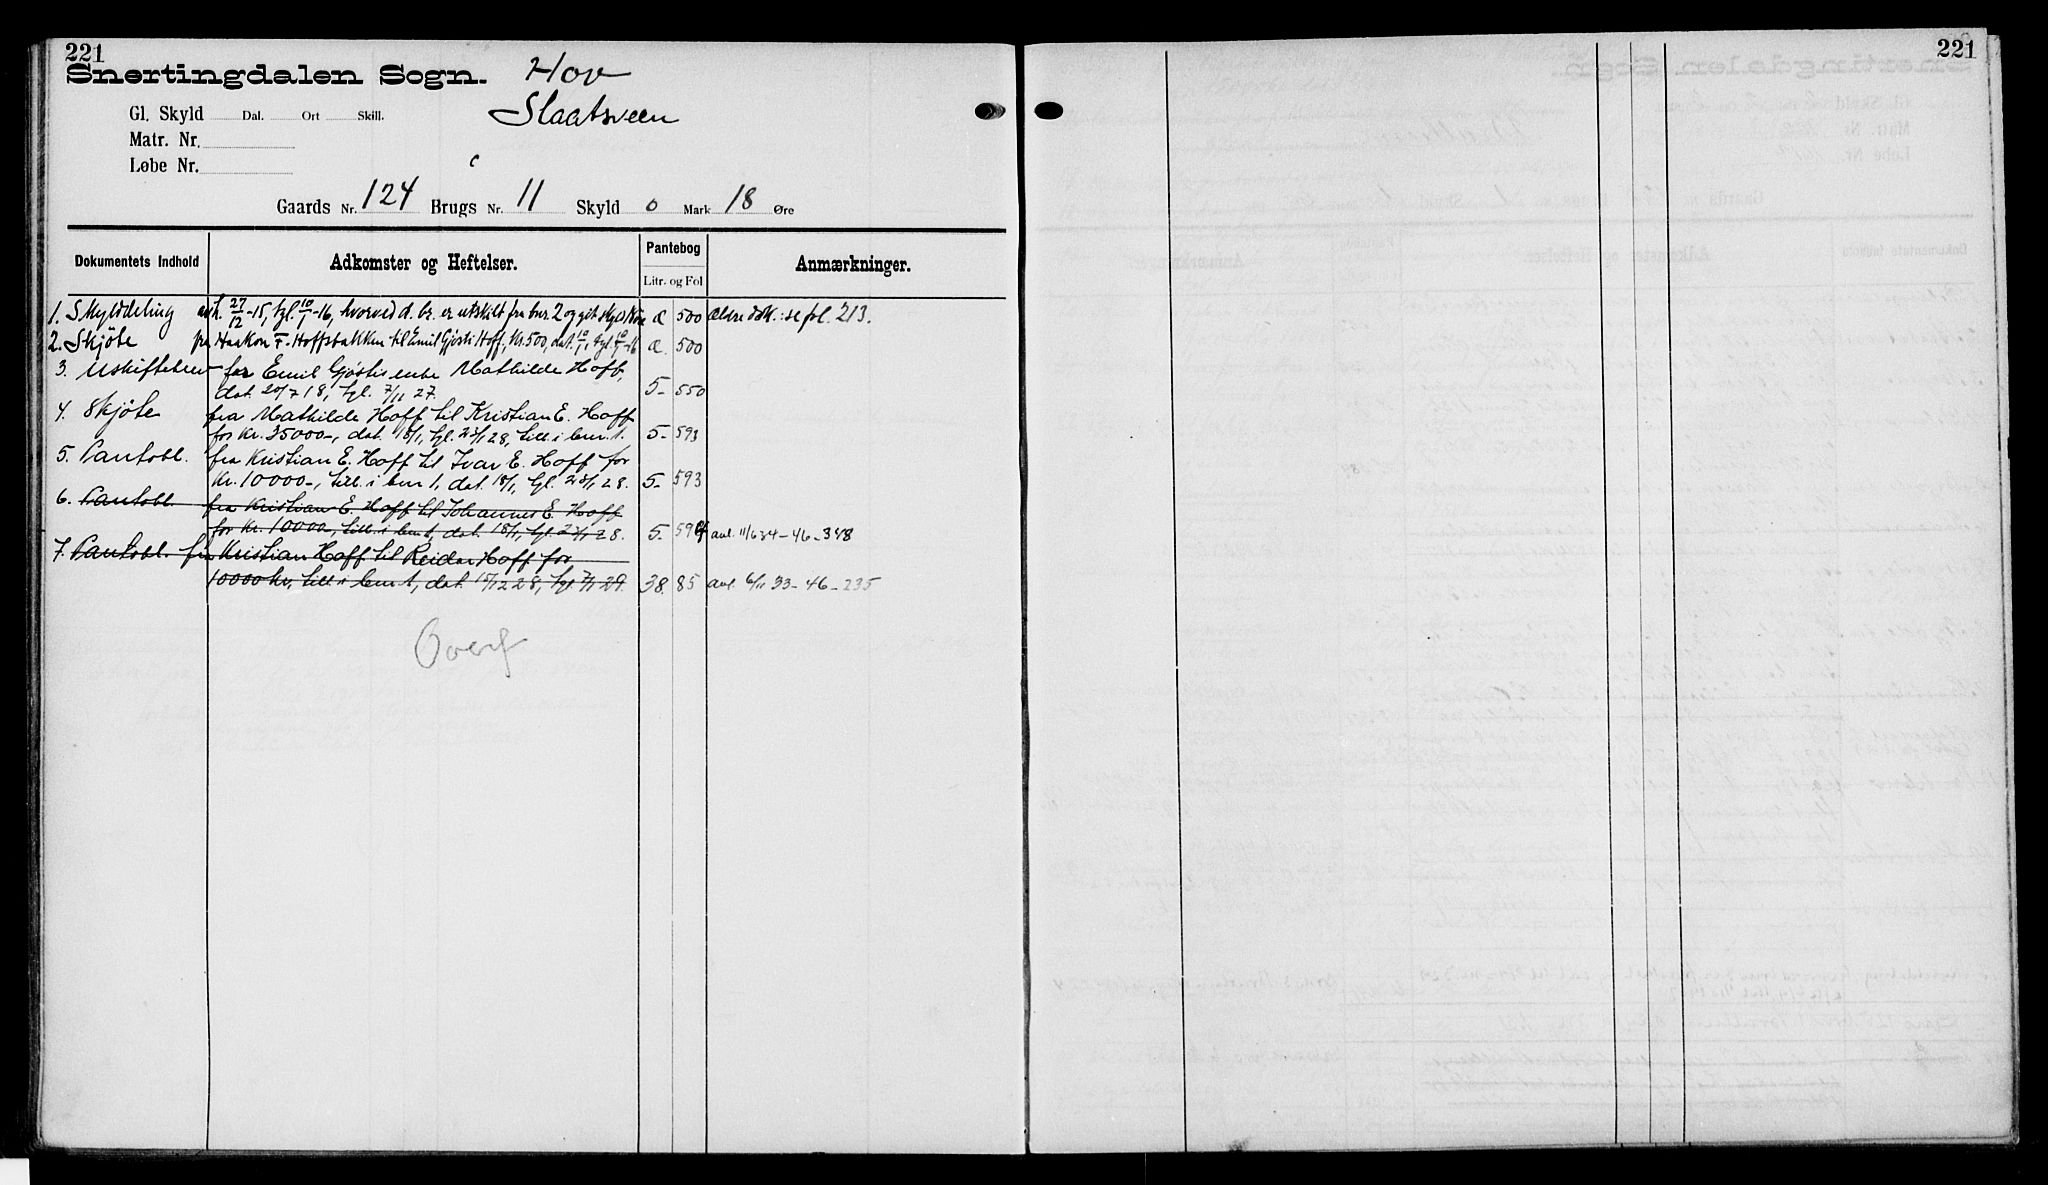 221
Snertingdalen Sogn. Hov
Slaatsveen
Gl. Skyld Dal. Ort Skill.
Matr. Nr.
Løbe Nr.
Gaards Nr. 124 Brugs Nr. 11 Skyld 0 Mark 18 Øre
Dokumentets Indhold Adkomster og Heftelser. Pantebog Litr. og Fol Anmærkninger.
1. Skylddeling avh. 27/12-15, tgl. 10/1-16, hvorved d. br. er utskilt fra bnr 2 og git skyld æ 500 Ældre dok.: se fol. 213.
2. Skjøte fra Haakon F. Hoffsbakken til Emil Gjøsti Hoff, kr. 500, dat. 10/1, tgl. 10/1-16 æ. 500
3. Uskiftebev. for Emil Gjøstis enke Mathilde Hoff,
dat. 20/7 18, tgl. 7/11 27. 5- 550
4. Skjøte fra Mathilde Hoff til Kristian E. Hoff
for kr. 35000-, dat. 18/1, tgl. 23/1 28, till. i bnr. 1. 5- 593
5. Pantobl. fra Kristian E. Hoff til Ivar E. Hoff for
kr. 10000-, till. i bnr 1, dat. 18/1, tgl. 23/1 28. 5- 593
6. Pantobl. fra Kristian E. Hoff til Johannes E. Hoff
for kr. 10000-, till. i bnr 1, dat. 18/1, tgl. 23/1 28. 5- 594 avl. 11/6 34-46-348
7. Pantobl. fra Kristian Hoff til Reidar Hoff for
10000 kr, till. i bnr 1, dat. 17/12 28, tgl. 7/1 29. 38. 85 avl. 6/11 33-46-235
Overf
221